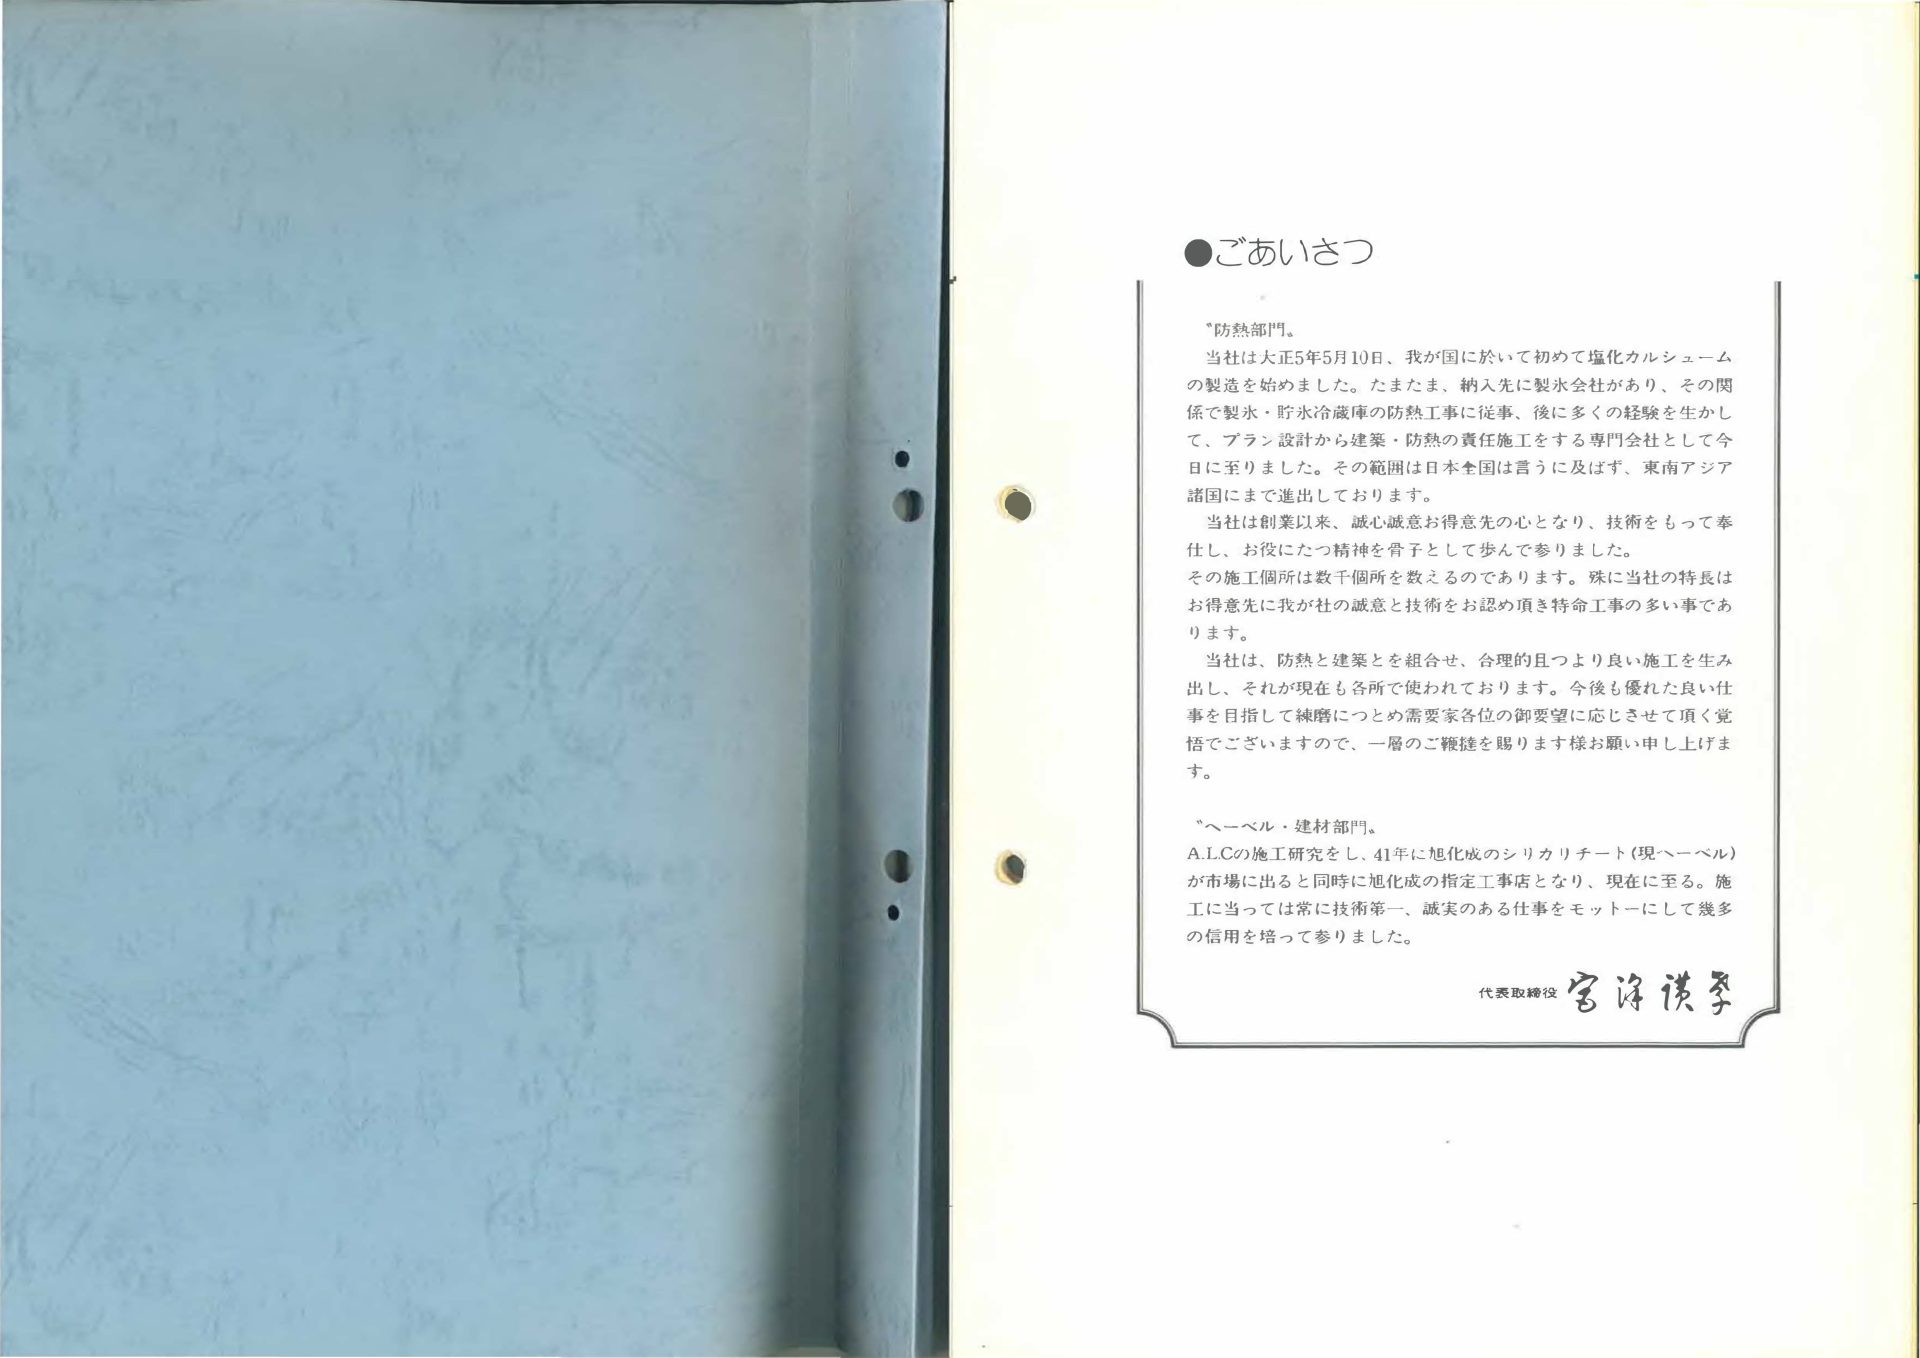 ●ごあいさつ
〝防熱部門〟
当社は大正5年5月10日、我が国に於いて初めて塩化カルシューム
の製造を始めました。たまたま、納入先に製氷会社があり、その関
係で製氷・貯氷冷蔵庫の防熱工事に従事、後に多くの経験を生かし
て、プラン設計から建築・防熱の責任施工をする専門会社として今
日に至りました。その範囲は日本全国は言うに及ばず、東南アジア
諸国にまで進出しております。
当社は創業以来、誠心誠意お得意先の心となり、技術をもって奉
仕し、お役にたつ精神を骨子として歩んで参りました。
その施工個所は数千個所を数えるのであります。殊に当社の特長は
お得意先に我が社の誠意と技術をお認め頂き特命工事の多い事であ
ります。
当社は、防熱と建築とを組合せ、合理的且つより良い施工を生み
出し、それが現在も各所で使われております。今後も優れた良い仕
事を目指して練磨につとめ需要家各位の御要望に応じさせて頂く覚
悟でございますので、一層のご鞭撻を賜ります様お願い申し上げま
す。
〝ヘーベル・建材部門〟
A.L.Cの施工研究をし、41年に旭化成のシリカリチート(現ヘーベル)
が市場に出ると同時に旭化成の指定工事店となり、現在に至る。施
工に当っては常に技術第一、誠実のある仕事をモットーにして幾多
の信用を培って参りました。
代表取締役